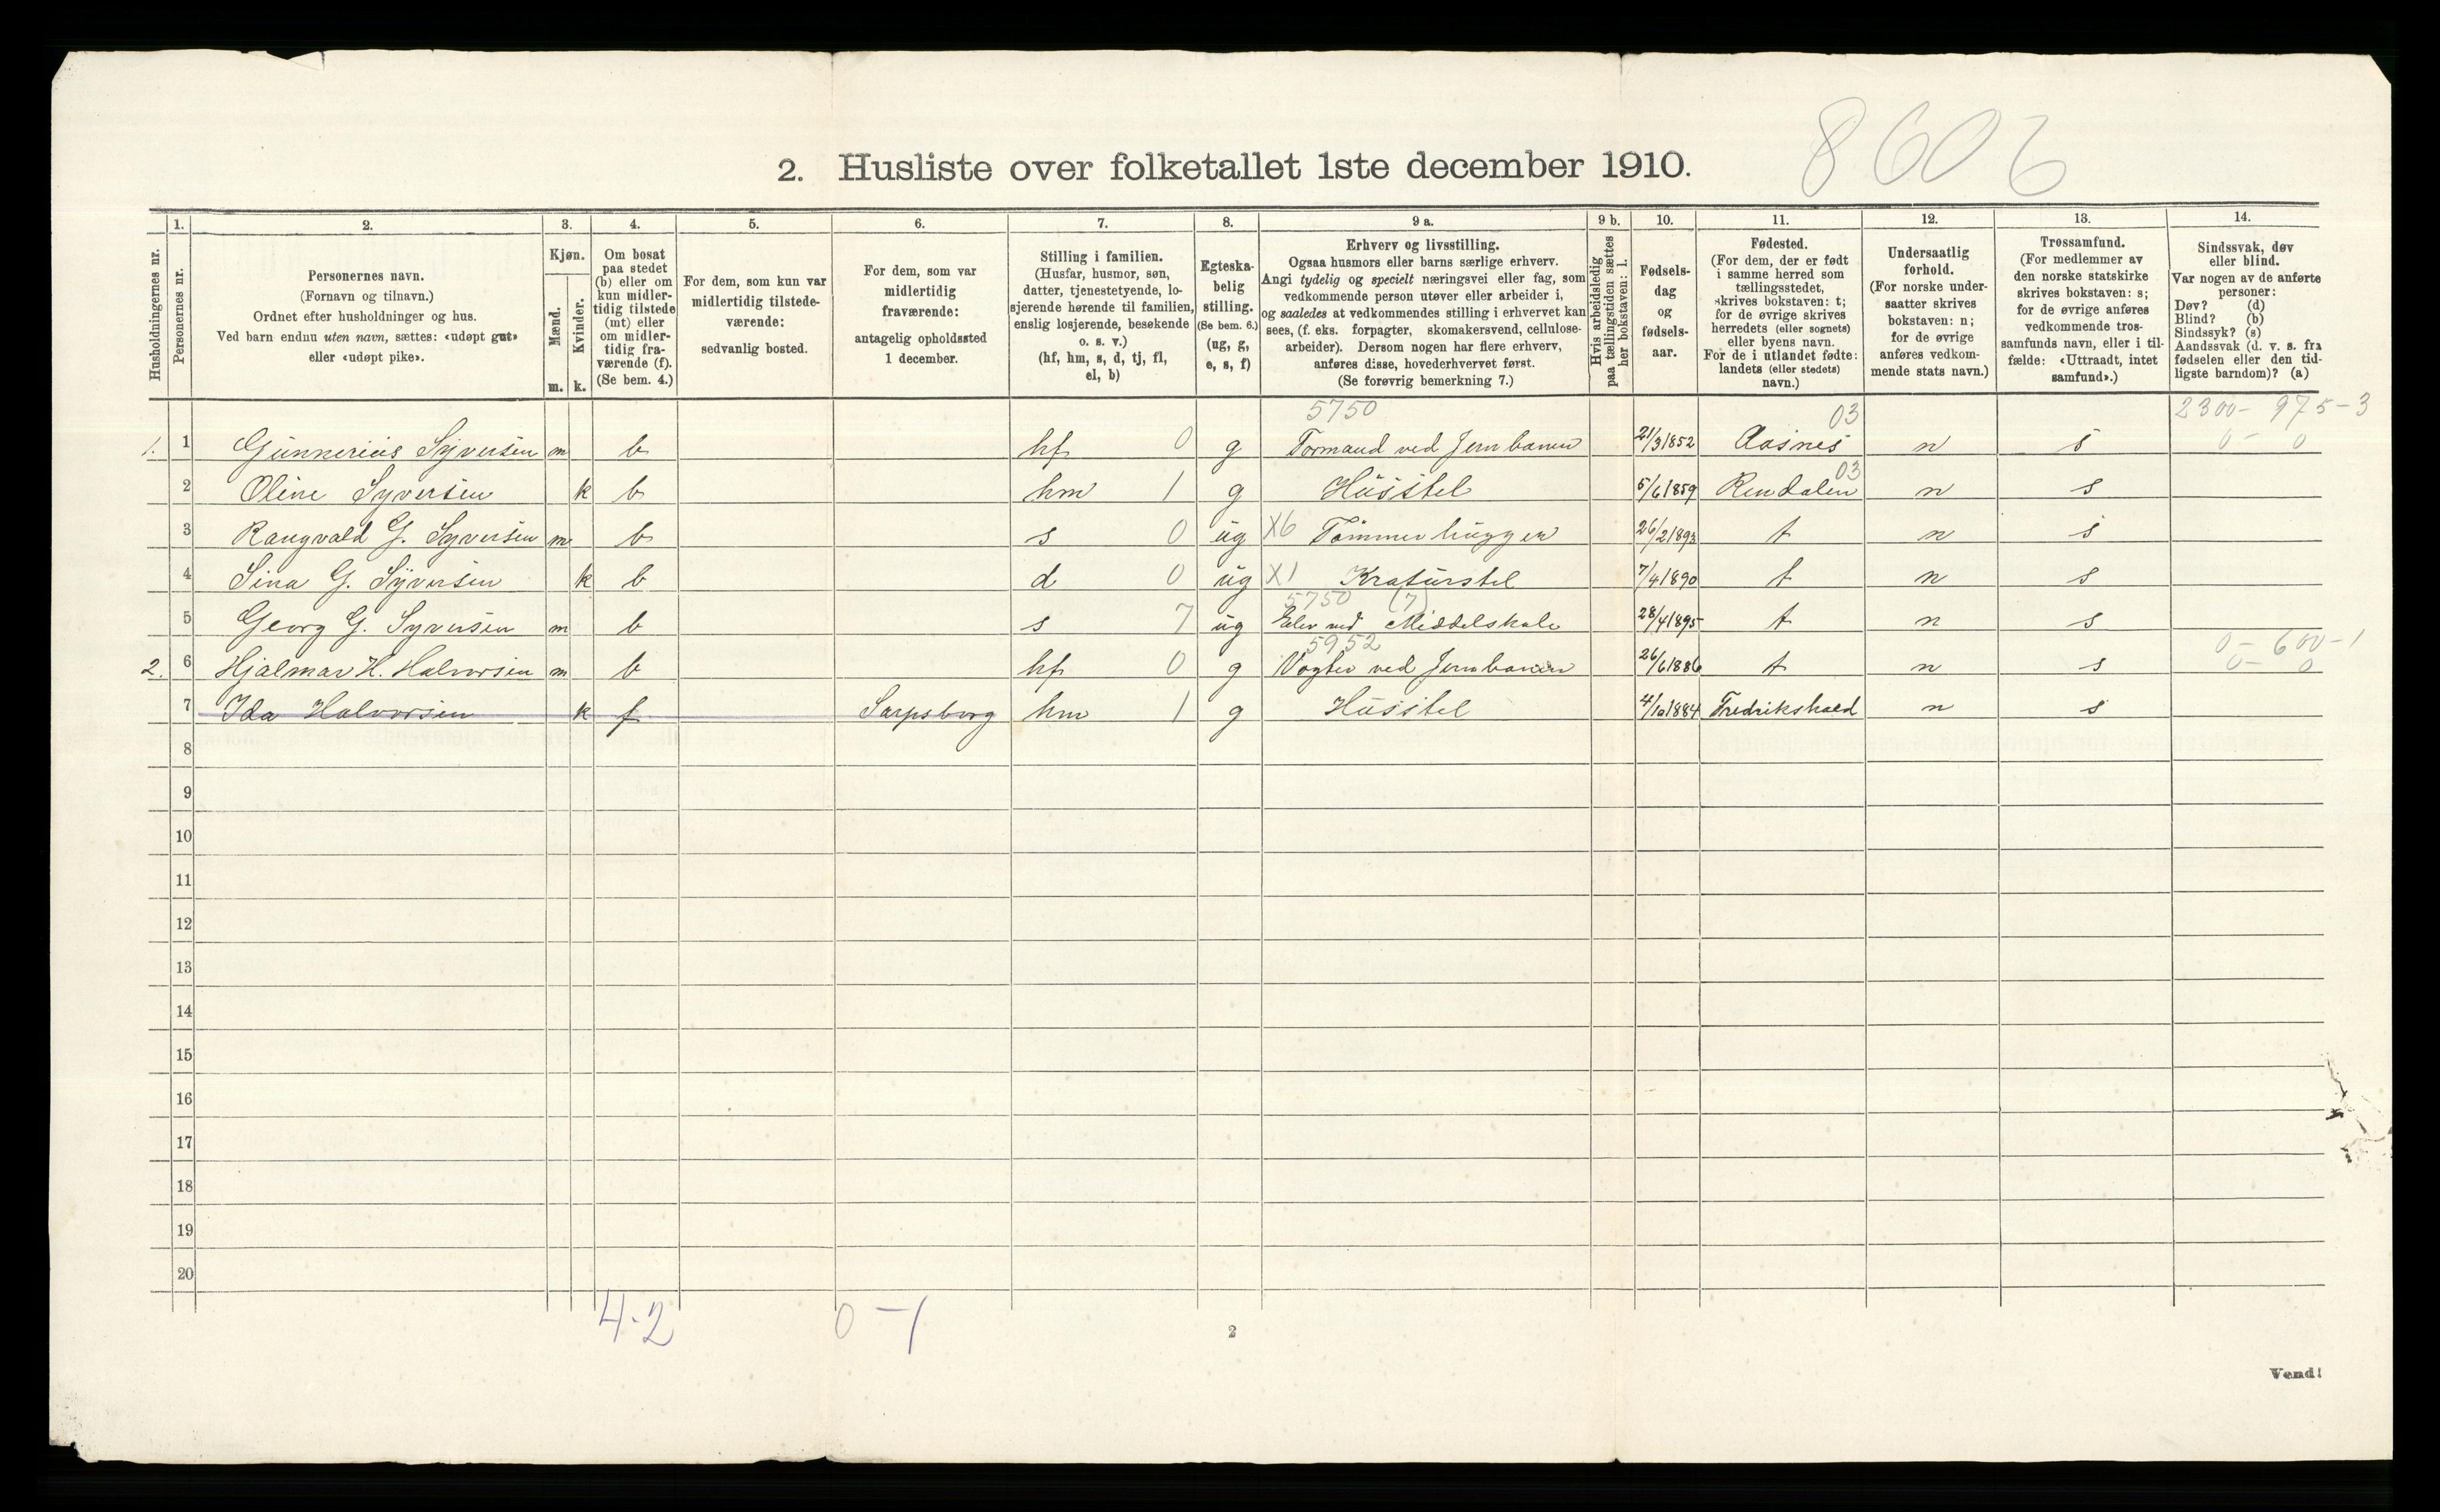 8606
2. Husliste over folketallet 1ste december 1910.
Husholdningernes nr.
1.
Personernes nr.
2.
Personernes navn.
(Fornavn og tilnavn.)
Ordnet efter husholdninger og hus.
Ved barn endnu uten navn, sættes: «udøpt gut»
eller «udøpt pike».
3.
Kjøn.
Mænd.
Kvinder.
m. k.
4.
Om bosat
paa stedet
(b) eller om
kun midler-
tidig tilstede
(mt) eller
om midler-
tidig fra-
værende (f).
(Se bem. 4.)
5.
For dem, som kun var
midlertidig tilstede-
værende:
sedvanlig bosted.
6.
For dem, som var
midlertidig
fraværende:
antagelig opholdssted
1 december.
7.
Stilling i familien.
(Husfar, husmor, søn,
datter, tjenestetyende, lo-
sjerende hørende til familien,
enslig losjerende, besøkende
o. s. v.)
(hf, hm, s, d, tj, fl,
el, b)
8.
Egteska-
belig
stilling.
(Se bem. 6.)
(ug, g,
e, s, f)
9 a.
Erhverv og livsstilling.
Ogsaa husmors eller barns særlige erhverv.
Angi tydelig og specielt næringsvei eller fag, som
vedkommende person utøver eller arbeider i,
og saaledes at vedkommendes stilling i erhvervet kan
sees, (f. eks. forpagter, skomakersvend, cellulose-
arbeider). Dersom nogen har flere erhverv,
anføres disse, hovederhvervet først.
(Se forøvrig bemerkning 7.)
9 b.
Hvis arbeidsledig
paa tællingstiden sættes
her bokstaven: l.
10.
Fødsels-
dag
og
fødsels-
aar.
11.
Fødested.
(For dem, der er født
i samme herred som
tællingsstedet,
skrives bokstaven: t;
for de øvrige skrives
herredets (eller sognets)
eller byens navn.
For de i utlandet fødte:
landets (eller stedets)
navn.)
12.
Undersaatlig
forhold.
(For norske under-
saatter skrives
bokstaven: n;
for de øvrige
anføres vedkom-
mende stats navn.)
13.
Trossamfund.
(For medlemmer av
den norske statskirke
skrives bokstaven: s;
for de øvrige anføres
vedkommende tros-
samfunds navn, eller i til-
fælde: «Uttraadt, intet
samfund».)
14.
Sindssvak, døv
eller blind.
Var nogen av de anførte
personer:
Døv? (d)
Blind? (b)
Sindssyk? (s)
Aandssvak (d. v. s. fra
fødselen eller den tid-
ligste barndom)? (a)
5750 03 2300- 975-3
1. 1 Gunnerius Syversen m b hf 0 g Formand ved Jernbanen 21/3 1852 Aasnes n s 0- 0
03
2 Oline Syversen k b hm 1 g Husstel 5/6 1859 Rendalen n s
3 Rangvald G. Syversen m b s 0 ug X6 Tømmerhugger 26/2 1893 t n s
4 Sina G. Syversen k b d 0 ug X1 Kraturstel 7/4 1890 t n s
5750 (7)
5 Georg G. Syversen m b s 7 ug Elev ved Middelskole 28/4 1895 t n s
5952 0- 600-1
2. 6 Hjalmar H. Halvorsen m b hf 0 g Vogter ved Jernbanen 26/6 1886 t n s 0- 0
7 Ida Halvorsen k f Sarpsborg hm 1 g Husstel 4/10 1884 Fredrikshald n s
8
9
10
11
12
13
14
15
16
17
18
19
20
4-2 0-1
2
Vend!